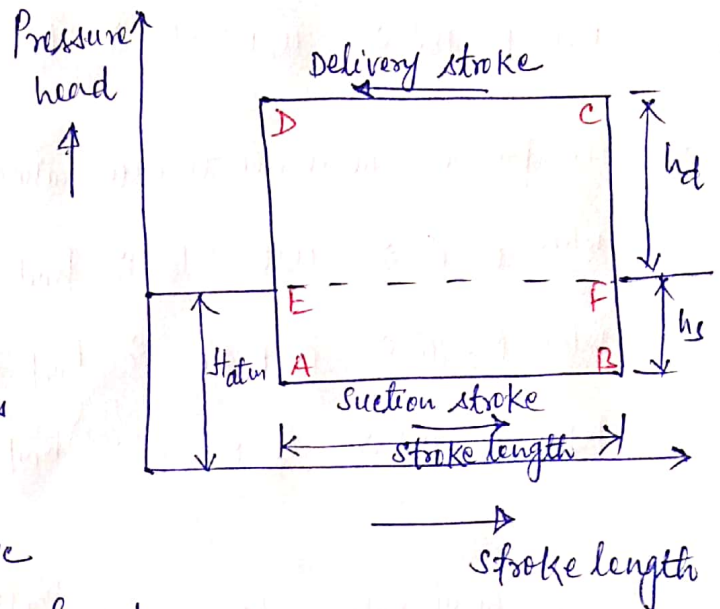 Pressure
head
Delivery stroke
D
C
hd
E
F
hs
Hatm
A
B
Suction stroke
stroke length
stroke length